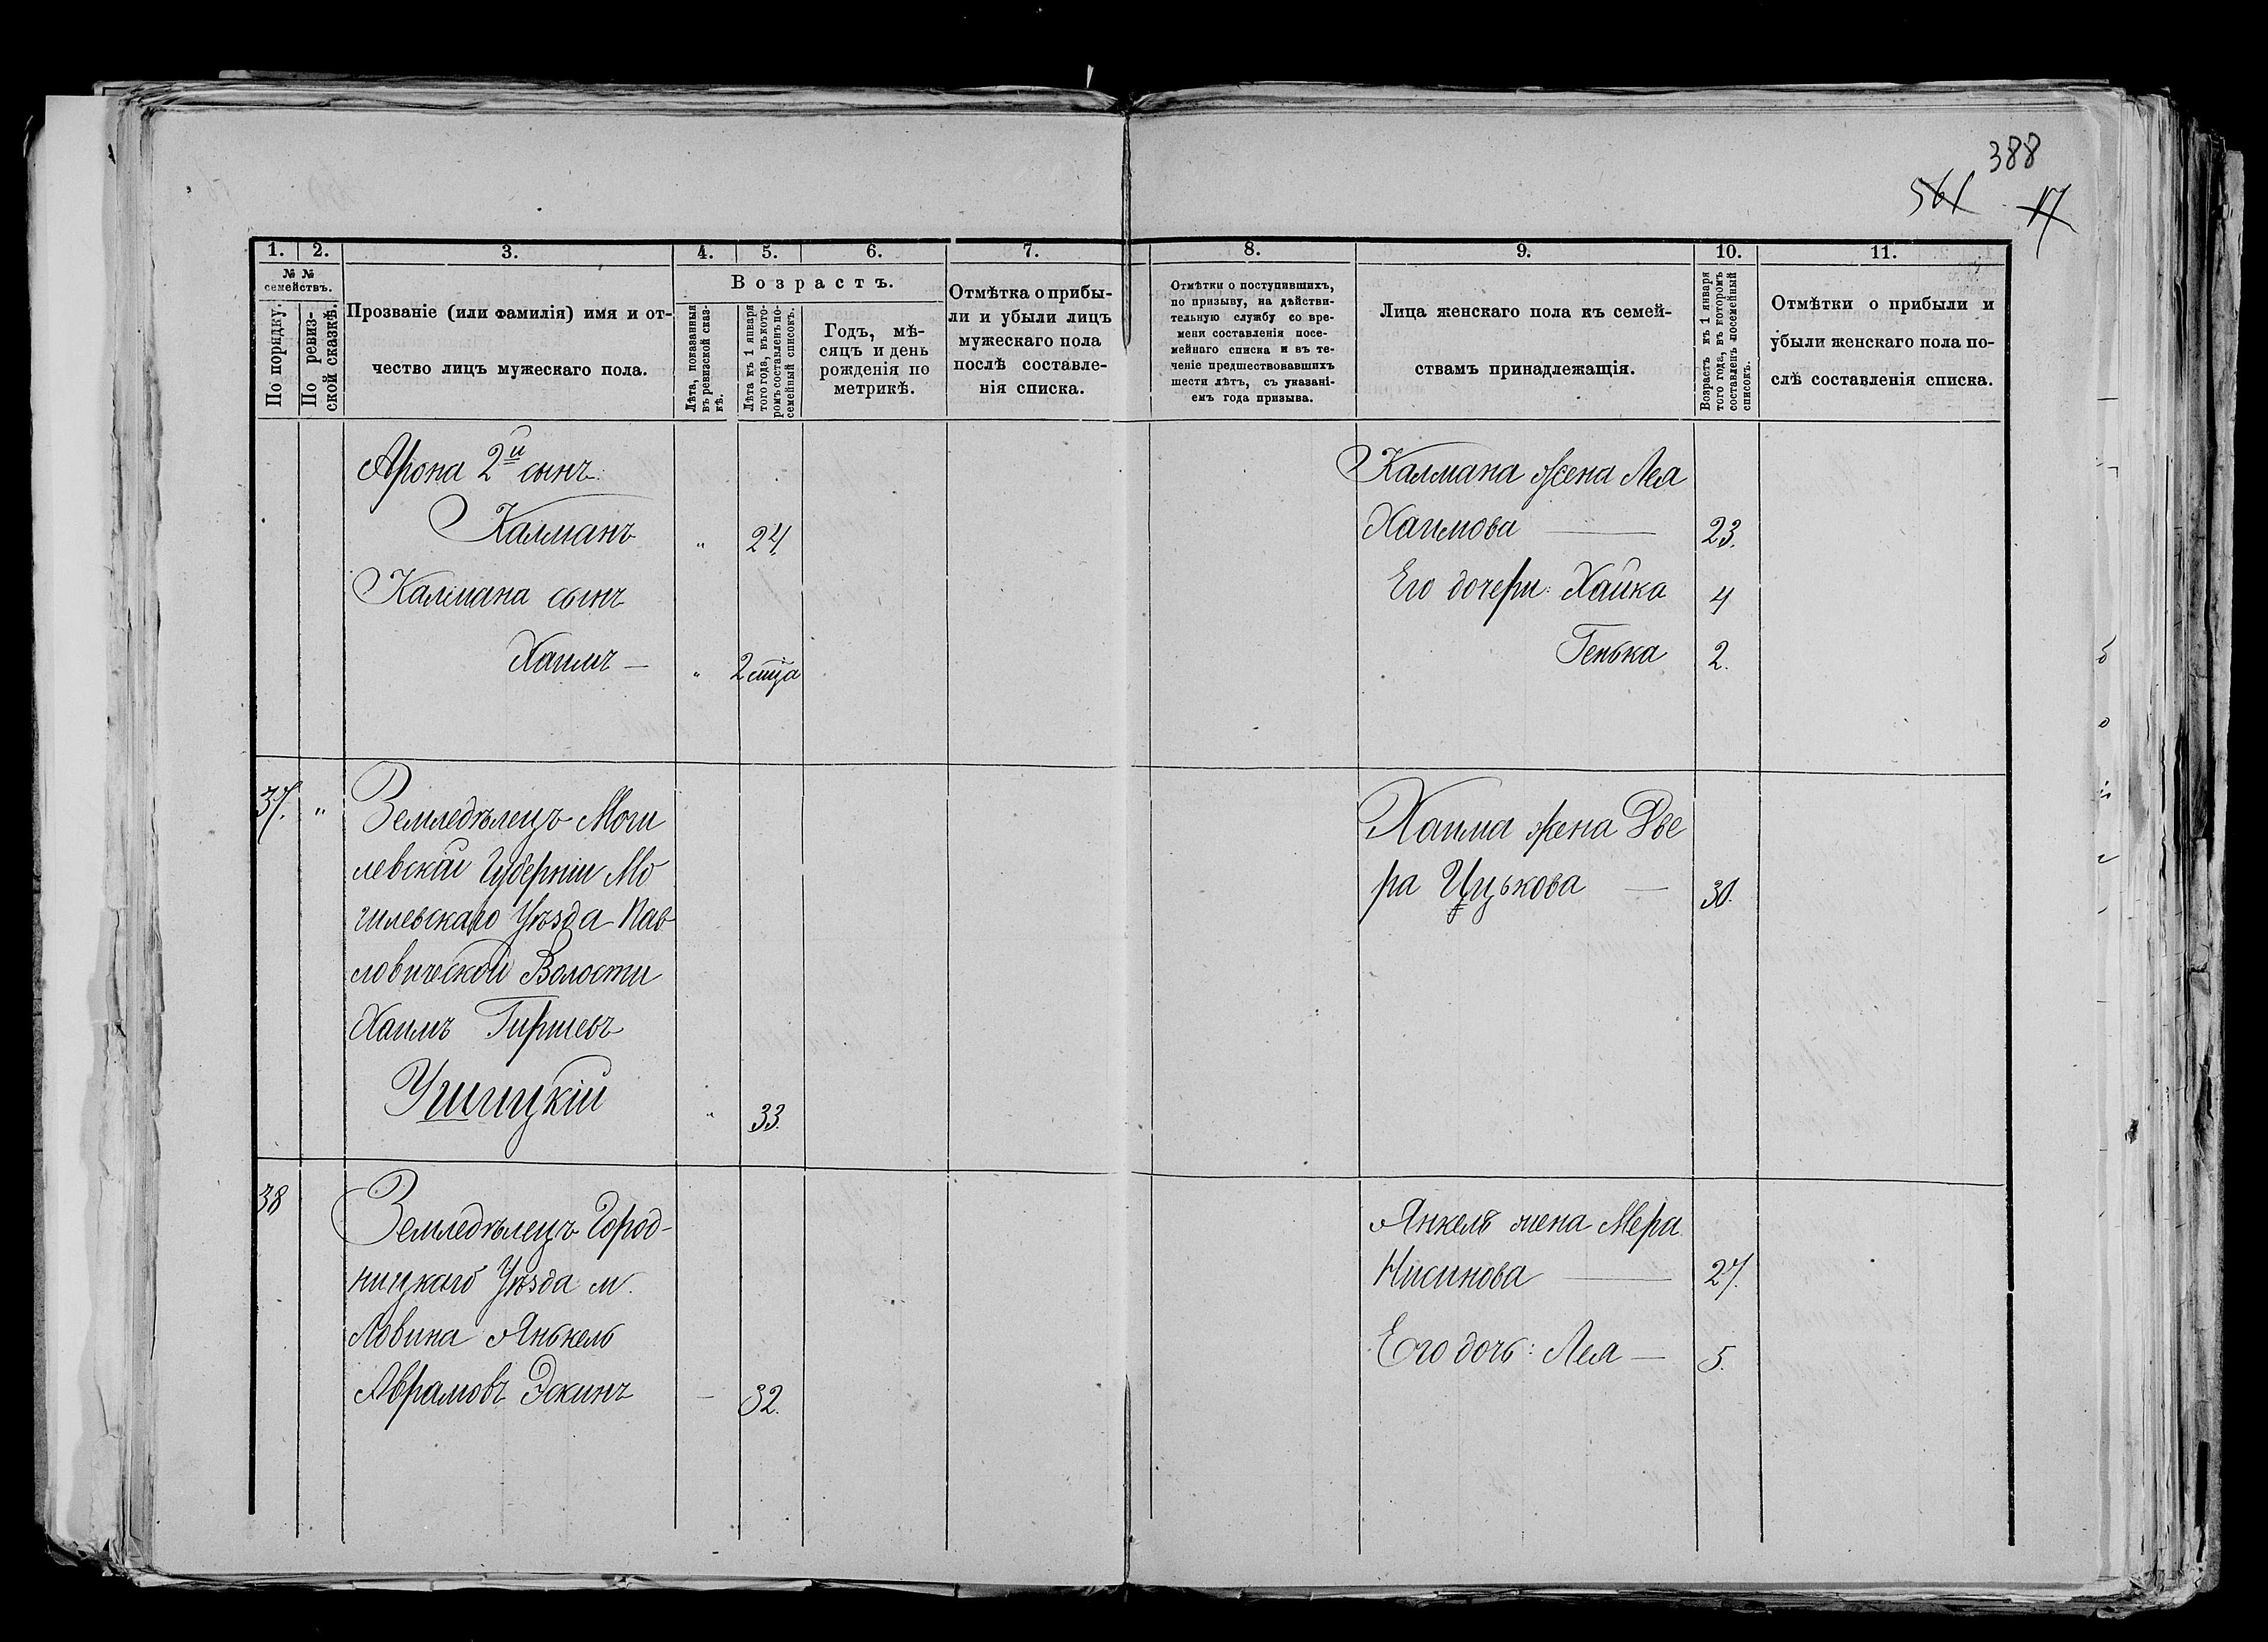 388
561 17
1. 2. 3. 4. 5. 6. 7. 8. 9. 10. 11.
№ №
семействъ.
По порядку.
По ревиз-
ской сказкѣ.
Прозваніе (или фамилія) имя и от-
чество лицъ мужескаго пола.
Возрастъ.
Лѣта, показанныя
въ ревизской сказ-
кѣ.
Лѣта къ 1 января
того года, въ кото-
ромъ составленъ по-
семейный списокъ.
Годъ, мѣ-
сяцъ и день
рожденія по
метрикѣ.
Отмѣтка о прибы-
ли и убыли лицъ
мужескаго пола
послѣ составле-
нія списка.
Отмѣтки о поступившихъ,
по призыву, на дѣйстви-
тельную службу со вре-
мени составленія посе-
мейнаго списка и въ те-
ченіе предшествовавшихъ
шести лѣтъ, съ указані-
емъ года призыва.
Лица женскаго пола къ семей-
ствамъ принадлежащія.
Возрастъ къ 1 января
того года, въ которомъ
составленъ посемейный
списокъ.
Отмѣтки о прибыли и
убыли женскаго пола по-
слѣ составленія списка.
Арона 2й сынъ
Калманъ " 24
Калмана сынъ
Хаимъ — " 2 мца
Калмана жена Лея
Хаимова — 23.
Его дочери: Хайка 4
Генька 2.
37. " Земледѣлецъ Моги
левской Губерніи Мо
гилевскаго Уѣзда Пав
ловической Волости
Хаимъ Гиршевъ
Ушицкій " 33.
Хаима жена Две
ра Ицькова — 30.
38 Земледѣлецъ Город-
ницкаго Уѣзда м.
Ловина Янкель
Аврамовъ Эскинъ — 32.
Янкеля жена Мера
Нисинова — 27.
Его дочь: Лея — 5.